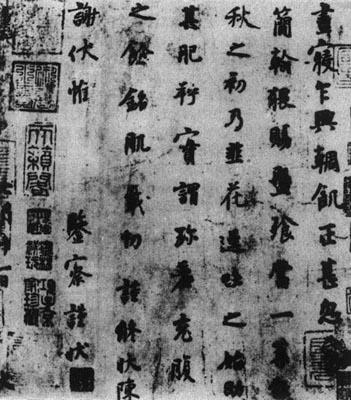 晝寢乍興輖飢正甚忽
簡翰猥賜盤飧當一葉報
秋之初乃韭花逞味之始助
其肥羜實謂珍羞充腹
之餘銘肌載切謹修狀陳
謝伏惟 鑒察謹狀